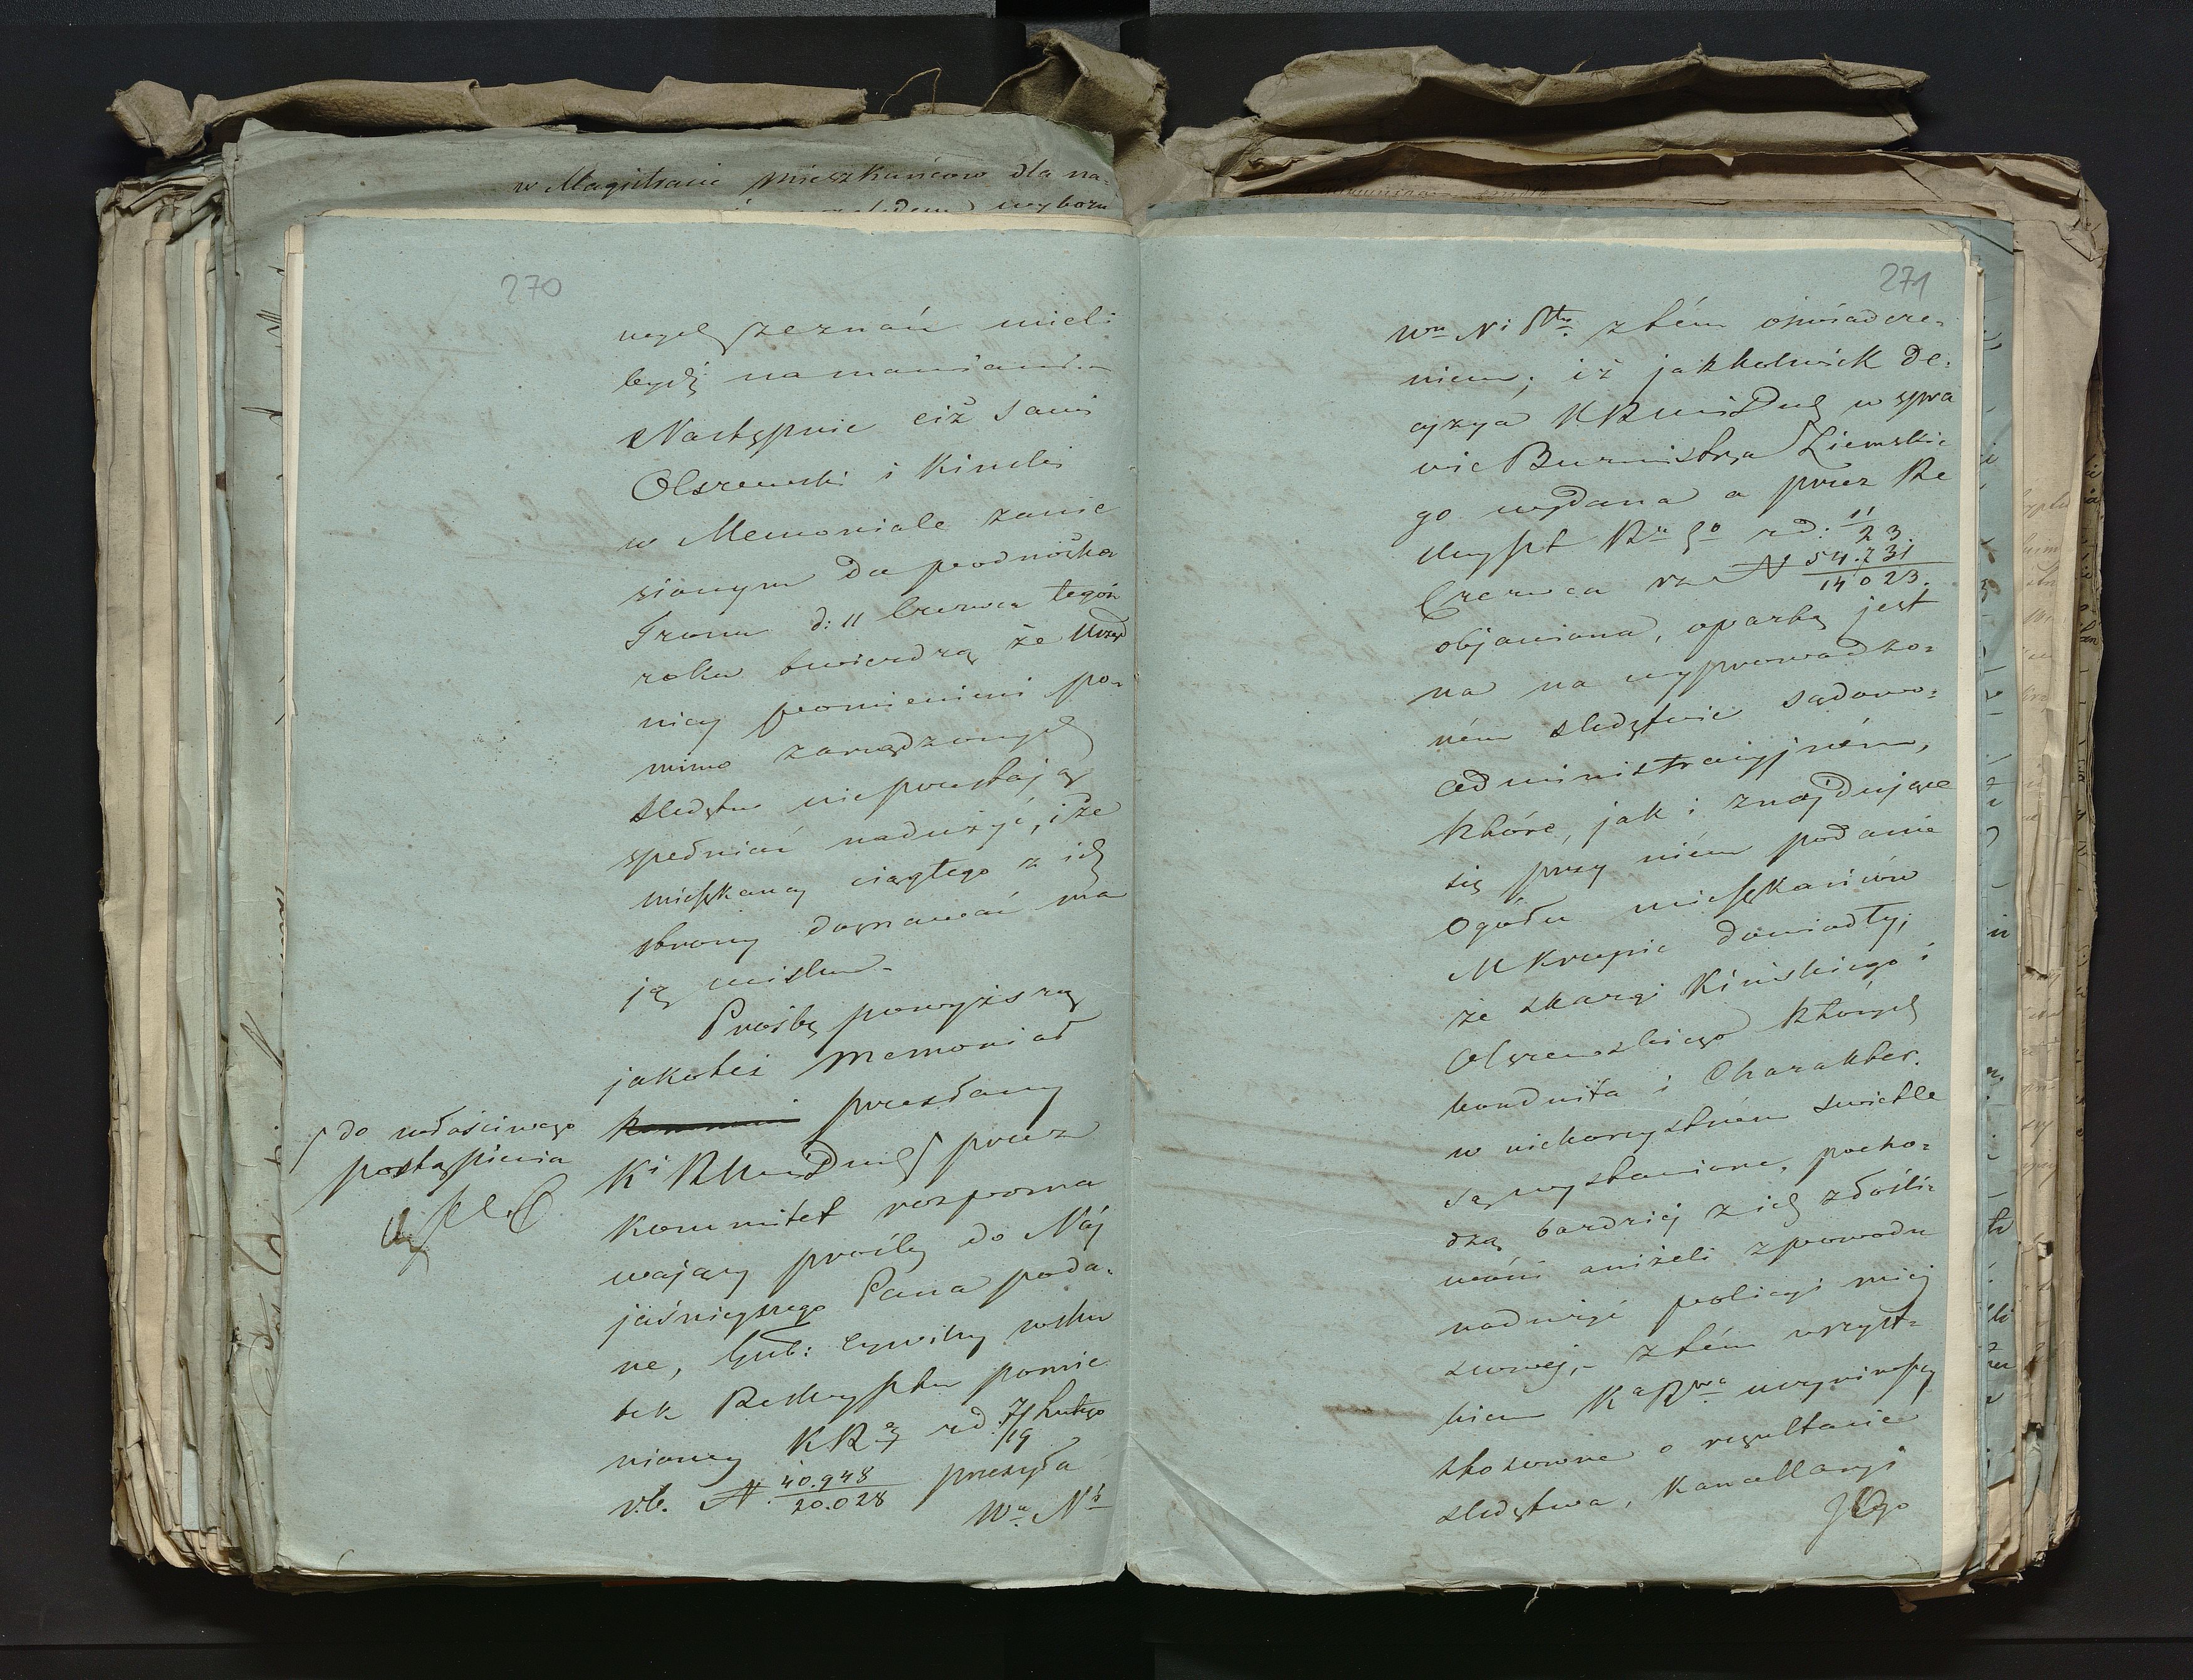 w Magistracie mieszkańców dla na-
wyboru
270
wych zeznań mieli
bydź namawiani.-
Następnie ciż sami
Olszewski i Kiński
w Memoriale zanie
sionym do podnóżka
Tronu d: 11 Czerwca tegoż
roku twierdzą że Urzęd
nicy pomienieni po-
mimo zarządzonych
śledztw nieprzestają
spełniać nadużyć, i że
mieszkańcy ciągłego z ich
strony doznawać ma
ją ucisku.-
Prośbę powyższą
jakoteż memoriał
przesłany
Ki R Sw i Duch przez
Kommitet rozpozna
wający prośby do Náj
jaśniejszego Pana poda-
ne, Gub: Cywilny wsku
tek Reskryptu pomie
nioney KR ey z d: 7/19 Lutego
r.b. N 40.948/20.028 przesyła
Wu Ni
do właściwego
postąpienia
271
Wu Ni Ptu z tém oświadcze-
niem; iż jakkolwiek de-
cyzya KR Sw i Duch w spra
wie Burmistrza Ziemskie
go wydana a przez Re
skrypt Ru Go z d: 11/23.
Czerwca rz N 54.731/14023.
objawiona, opartą jest
na na wyprowadzo-
ném śledztwie sądowo-
administracyjném,
które, jak i znajdujące
się przy niem podanie
Ogółu mieszkańców
M Krzepic dowiodły;
że skargi Kińskiego i
Olszewskiego których
konduita i Charakter.
w niekorzystném świetle
są wystawione, pocho-
dzą bardziej z ich złośli-
wości aniżeli z powodu
nadużyć policyi miej
scowej,- z tém wszyst-
kiem Ka Rwa uczyniwszy
stosowne o rezultacie
śledztwa, Kancellaryi
JOgo